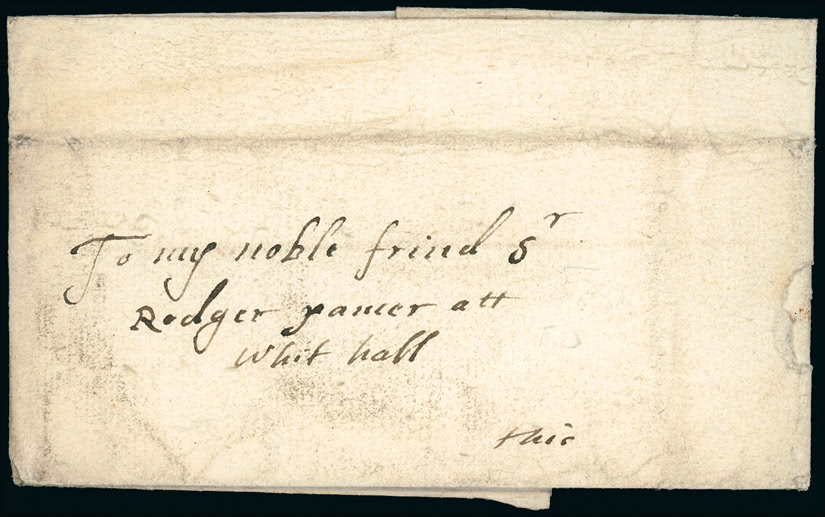 To my noble frind Sr
Rodger pamer att
Whit hall
this